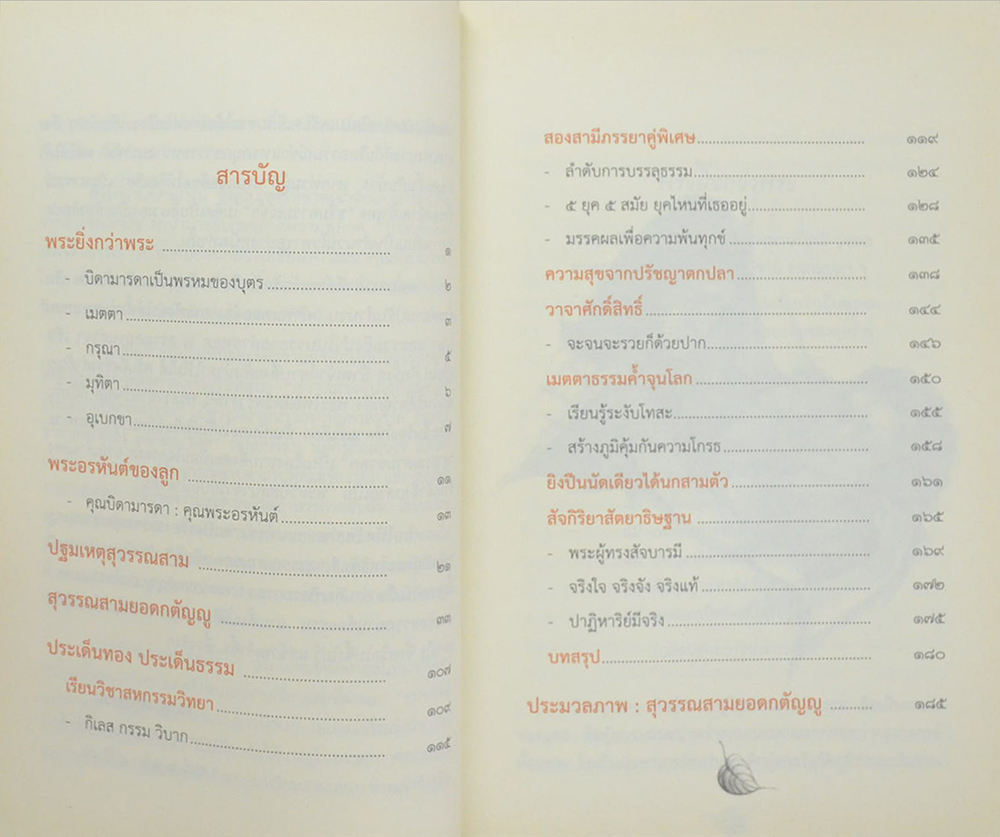 สารบัญ
พระยิ่งกว่าพระ ........................................ ๑
- บิดามารดาเป็นพรหมของบุตร ........................ ๒
- เมตตา ........................................ ๓
- กรุณา ........................................ ๕
- มุทิตา ........................................ ๖
- อุเบกขา ........................................ ๗
พระอรหันต์ของลูก ........................................ ๑๑
- คุณบิดามารดา : คุณพระอรหันต์ ........................ ๑๓
ปฐมเหตุสุวรรณสาม ........................................ ๒๑
สุวรรณสามยอดกตัญญู ........................................ ๓๓
ประเด็นทอง ประเด็นธรรม ........................................ ๑๐๗
เรียนวิชาสหกรรมวิทยา ........................................ ๑๐๙
- กิเลส กรรม วิบาก ........................................ ๑๑๕
สองสามีภรรยาคู่พิเศษ ........................................ ๑๑๙
- ลำดับการบรรลุธรรม ........................................ ๑๒๔
- ๕ ยุค ๕ สมัย ยุคไหนที่เธออยู่ ........................ ๑๒๘
- มรรคผลเพื่อความพ้นทุกข์ ........................ ๑๓๕
ความสุขจากปรัชญาตกปลา ........................ ๑๓๘
วาจาศักดิ์สิทธิ์ ........................................ ๑๔๔
- จะจนจะรวยก็ด้วยปาก ........................ ๑๔๖
เมตตาธรรมค้ำจุนโลก ........................ ๑๕๐
- เรียนรู้ระงับโทสะ ........................ ๑๕๕
- สร้างภูมิคุ้มกันความโกรธ ........................ ๑๕๘
ยิงปืนนัดเดียวได้นกสามตัว ........................ ๑๖๑
สัจกิริยาสัตยาธิษฐาน ........................ ๑๖๕
- พระผู้ทรงสัจบารมี ........................ ๑๖๙
- จริงใจ จริงจัง จริงแท้ ........................ ๑๗๒
- ปาฏิหาริย์มีจริง ........................ ๑๗๕
บทสรุป ........................................ ๑๘๐
ประมวลภาพ : สุวรรณสามยอดกตัญญู .......... ๑๘๕